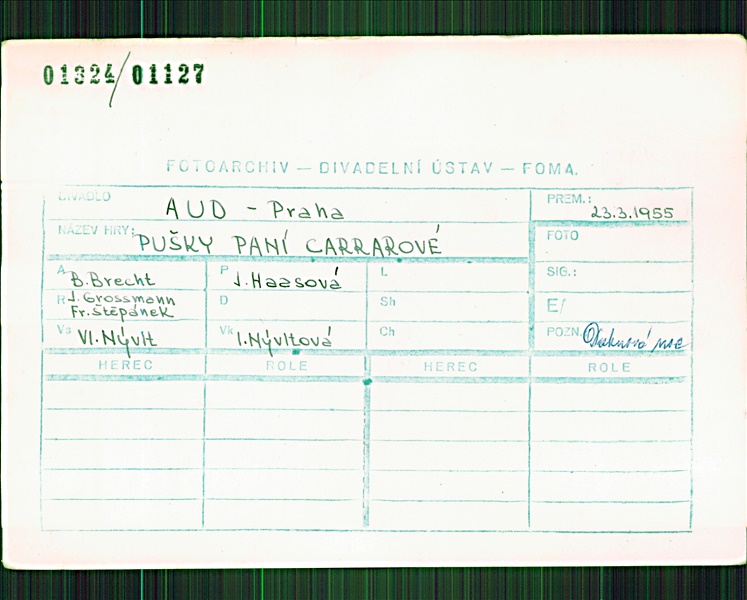 01324/01127
FOTOARCHIV — DIVADELNÍ ÚSTAV — FOMA.
DIVADLO AUD - Praha PREM.: 23.3.1955
NÁZEV HRY: PUŠKY PANÍ CARRAROVÉ FOTO
A B. Brecht P J. Haasová L SIG.:
R J. Grossmann Fr. Štěpánek D Sh E/
Vs Vl. Nývlt Vk I. Nývltová Ch POZN.
HEREC ROLE HEREC ROLE